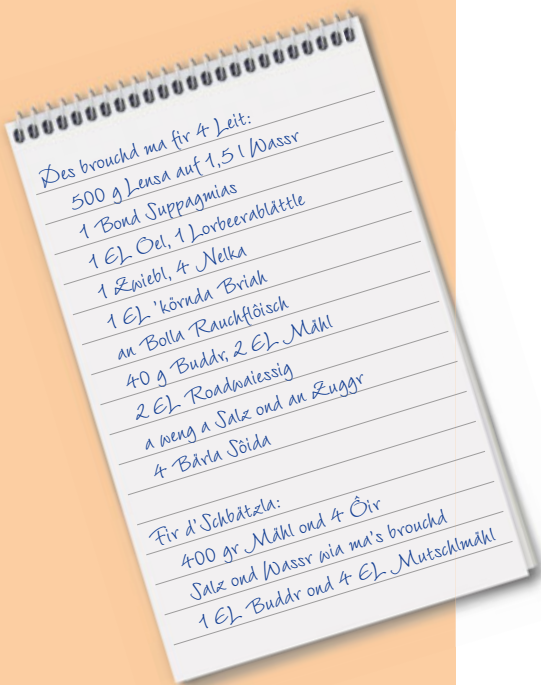 Des brouchd ma fir 4 Leit:
500 g Lensa auf 1,5 l Wassr
1 Bond Suppagmias
1 EL Oel, 1 Lorbeerablättle
1 Zwiebl, 4 Nelka
1 EL 'körnda Briah
an Bolla Rauchflôisch
40 g Buddr, 2 EL Mähl
2 EL Roadwaiessig
a weng a Salz ond an Zuggr
4 Bärla Sôida
Fir d'Schbätzla:
400 gr Mähl ond 4 Ôir
Salz ond Wassr wia ma's brouchd
1 EL Buddr ond 4 EL Mutschlmähl